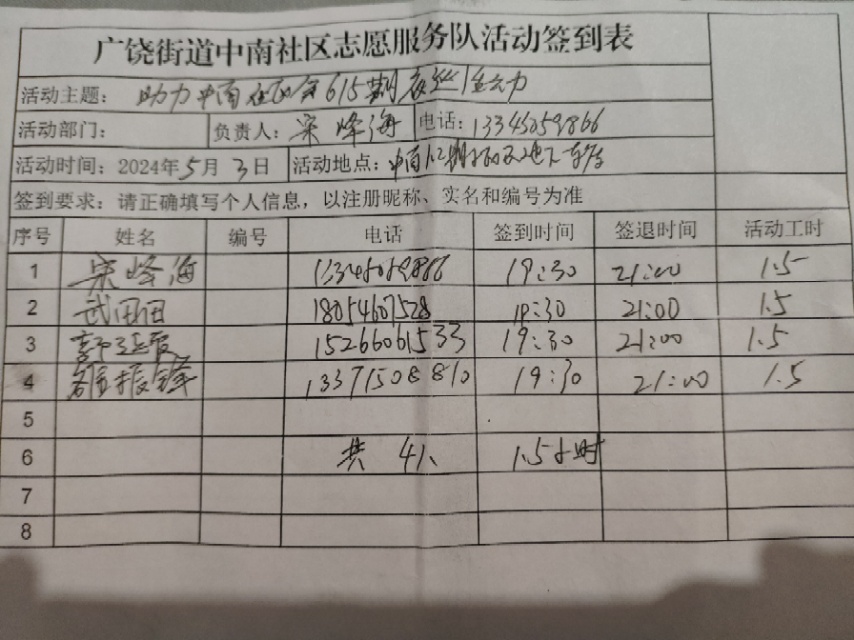 广饶街道中南社区志愿服务队活动签到表
活动主题: 助力中南社区 615期
活动部门: 负责人: 宋峰海 电话: 13345059866
活动时间: 2024年5月3日 活动地点: 中南
签到要求: 请正确填写个人信息，以注册昵称、实名和编号为准
序号 姓名 编号 电话 签到时间 签退时间 活动工时
1 宋峰海 19:30 21:00 1.5
2 武田田 18054607528 19:30 21:00 1.5
3 15266061533 19:30 21:00 1.5
4 13371508810 19:30 21:00 1.5
5
6 共 4人 1.5小时
7
8